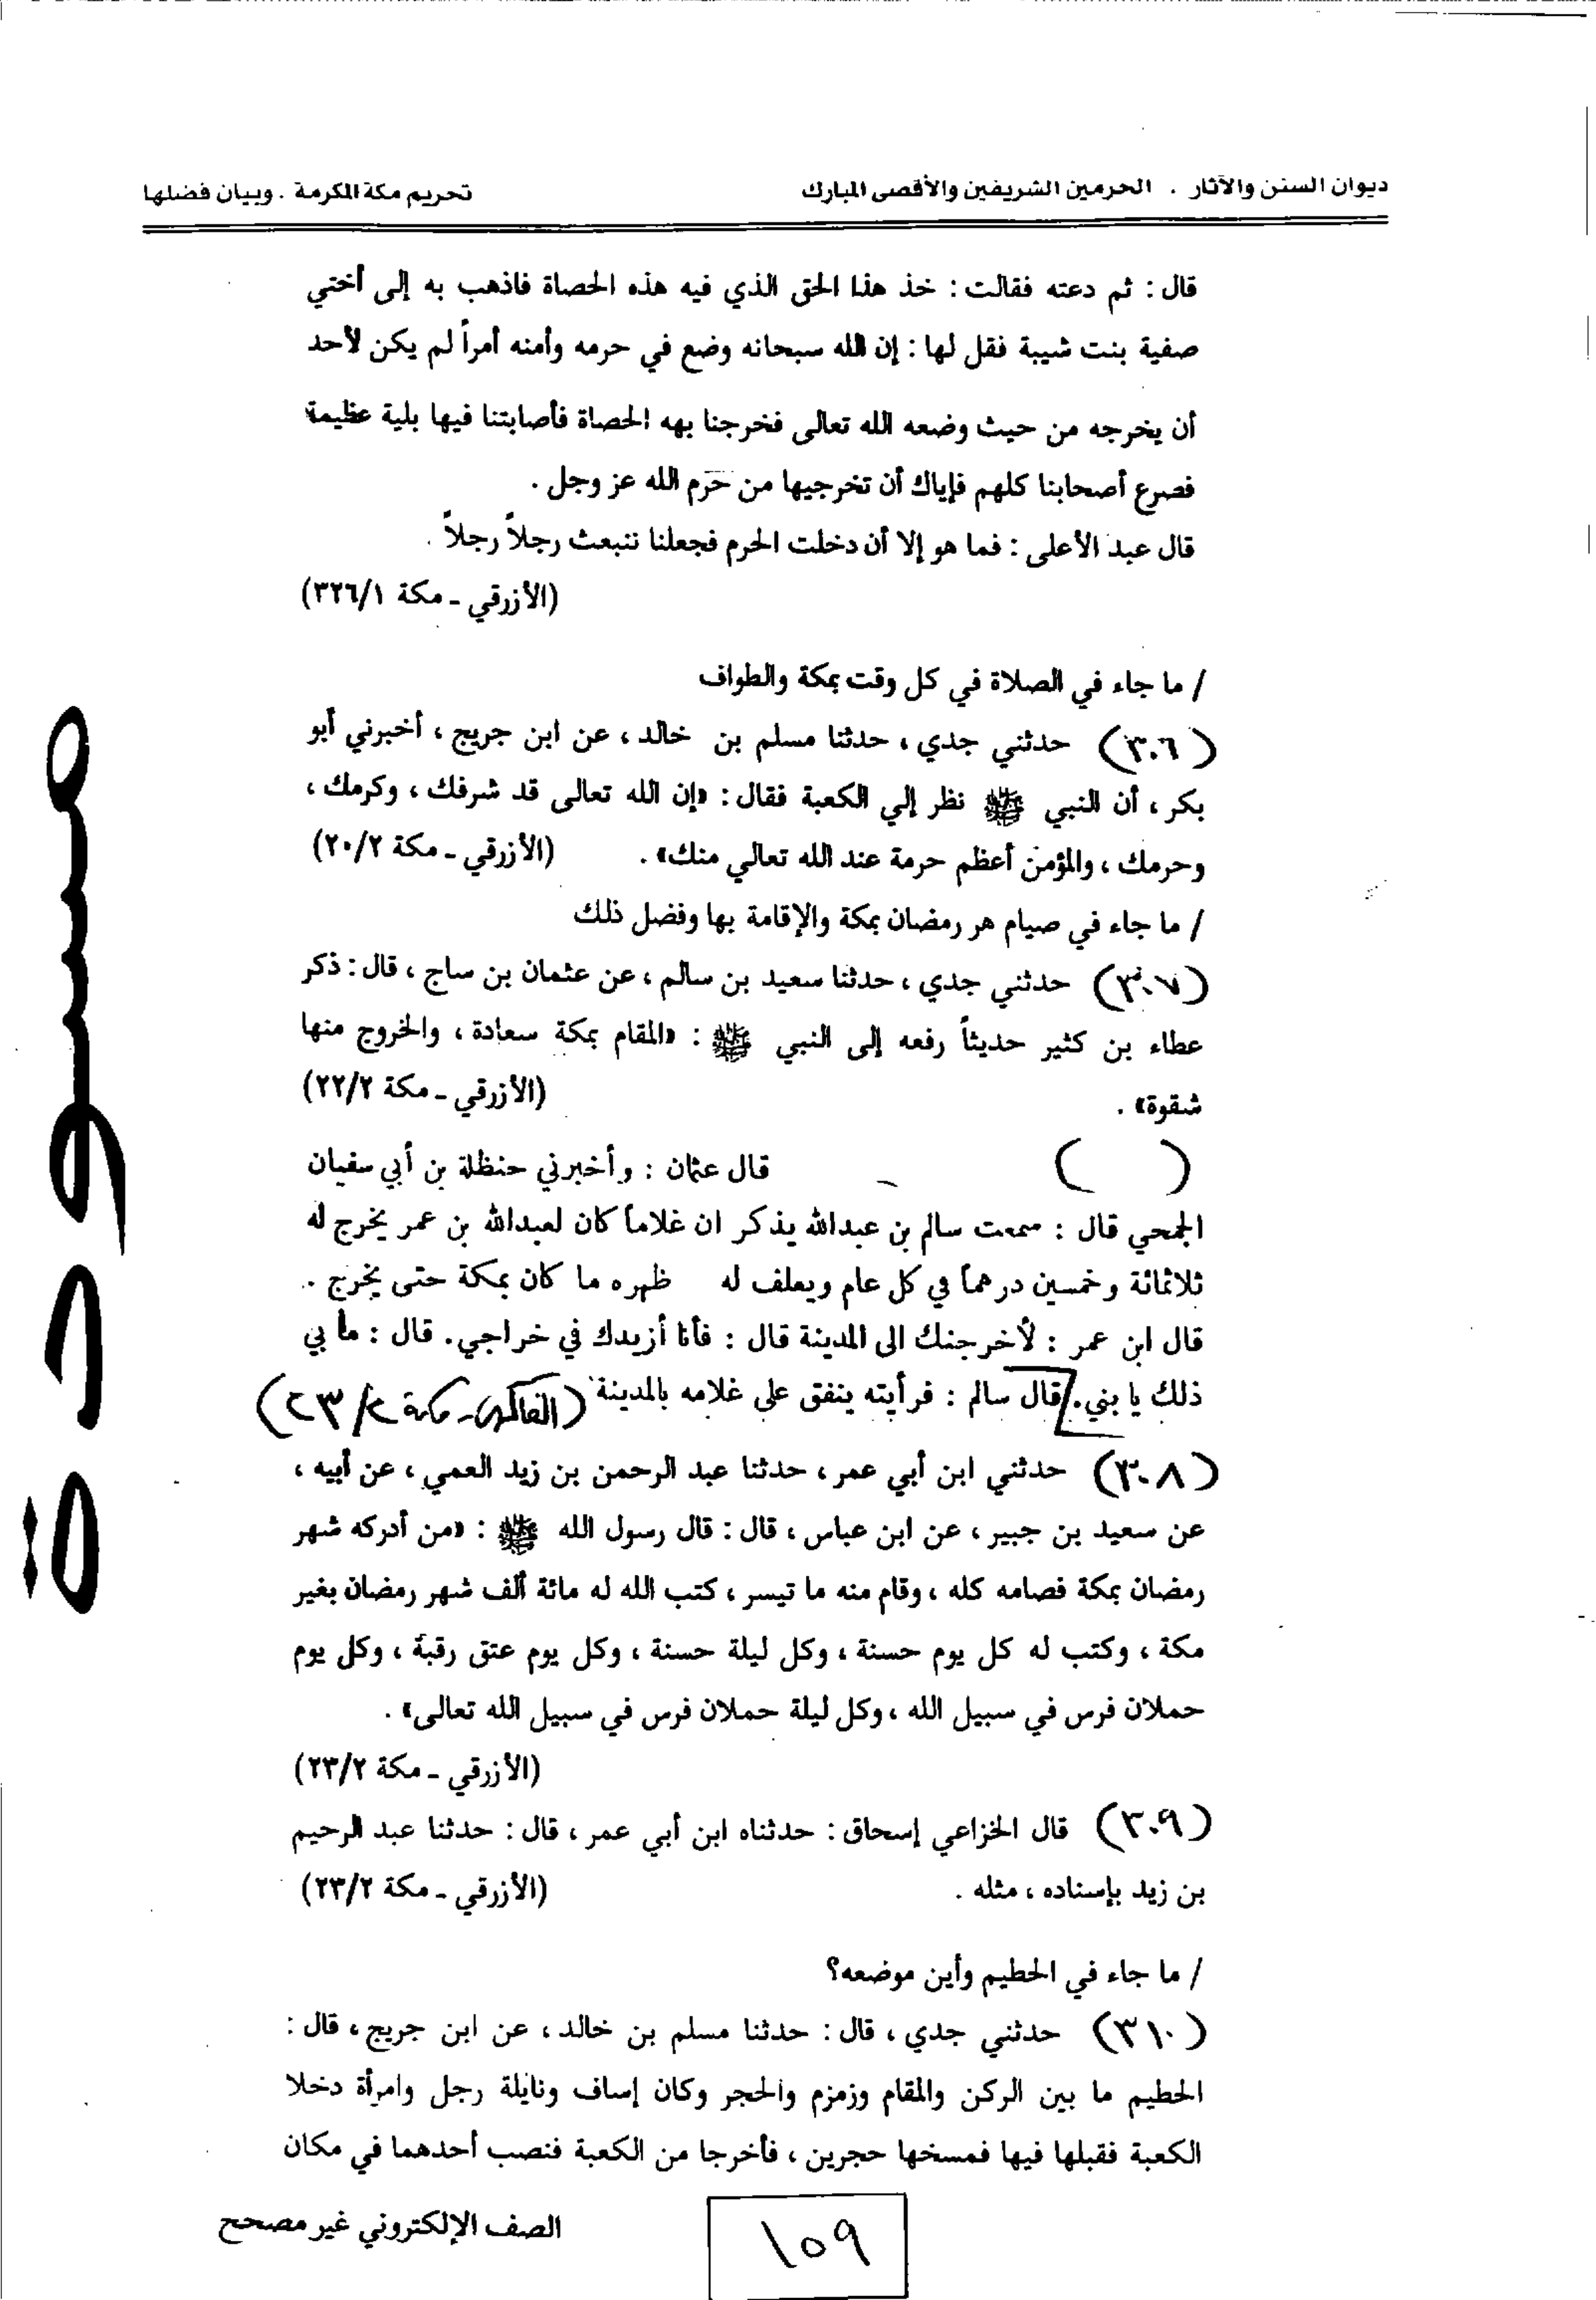 ديوان السنن والآثار . الحرمين الشريفين والأقصى المبارك
تحريم مكة المكرمة . وبيان فضلها
قال : ثم دعته فقالت : خذ هذا الحق الذي فيه هذه الحصاة فاذهب به إلى أختي
صفية بنت شيبة فقل لها : إن الله سبحانه وضع في حرمه وأمنه أمراً لم يكن لأحد
أن يخرجه من حيث وضعه الله تعالى فخرجنا بهه الحصاة فأصابتنا فيها بلية عظيمة
فصرع أصحابنا كلهم فإياك أن تخرجيها من حَرَم الله عز وجل .
قال عبد الأعلى : فما هو إلا أن دخلت الحرم فجعلنا ننبعث رجلاً رجلاً .
(الأزرقي - مكة ٣٢٦/١)
/ ما جاء في الصلاة في كل وقت بمكة والطواف
(٣٠٦) حدثني جدي ، حدثنا مسلم بن خالد ، عن ابن جريج ، أخبرني أبو
بكر ، أن النبي ﷺ نظر إلي الكعبة فقال : «إن الله تعالى قد شرفك ، وكرمك ،
وحرمك ، والمؤمن أعظم حرمة عند الله تعالي منك» . (الأزرقي - مكة ٢٠/٢)
/ ما جاء في صيام هر رمضان بمكة والإقامة بها وفضل ذلك
(٣٠٧) حدثني جدي ، حدثنا سعيد بن سالم ، عن عثمان بن ساج ، قال : ذكر
عطاء بن كثير حديثاً رفعه إلى النبي ﷺ : «المقام بمكة سعادة ، والخروج منها
شقوة» . (الأزرقي - مكة ٢٢/٢)
( ) قال عثمان : وأخبرني حنظلة بن أبي سفيان
الجمحي قال : سمعت سالم بن عبدالله يذكر ان غلاماً كان لعبدالله بن عمر يخرج له
ثلاثمائة وخمسين درهماً في كل عام ويعلف له ظهره ما كان بمكة حتى يخرج .
قال ابن عمر : لأخرجنك الى المدينة قال : فأنا أزيدك في خراجي . قال : ما بي
ذلك يا بني . قال سالم : فرأيته ينفق على غلامه بالمدينة (الفاكهي - مكة ٢٣/٢)
(٣٠٨) حدثني ابن أبي عمر ، حدثنا عبد الرحمن بن زيد العمي ، عن أبيه ،
عن سعيد بن جبير ، عن ابن عباس ، قال : قال رسول الله ﷺ : «من أدركه شهر
رمضان بمكة فصامه كله ، وقام منه ما تيسر ، كتب الله له مائة ألف شهر رمضان بغير
مكة ، وكتب له كل يوم حسنة ، وكل ليلة حسنة ، وكل يوم عتق رقبة ، وكل يوم
حملان فرس في سبيل الله ، وكل ليلة حملان فرس في سبيل الله تعالى» .
(الأزرقي - مكة ٢٣/٢)
(٣٠٩) قال الخزاعي إسحاق : حدثناه ابن أبي عمر ، قال : حدثنا عبد الرحيم
بن زيد بإسناده ، مثله . (الأزرقي - مكة ٢٣/٢)
/ ما جاء في الحطيم وأين موضعه؟
(٣١٠) حدثني جدي ، قال : حدثنا مسلم بن خالد ، عن ابن جريج ، قال :
الحطيم ما بين الركن والمقام وزمزم والحجر وكان إساف ونايلة رجل وامرأة دخلا
الكعبة فقبلها فيها فمسخها حجرين ، فأخرجا من الكعبة فنصب أحدهما في مكان
الصف الإلكتروني غير مصحح
١٥٩
مسودة